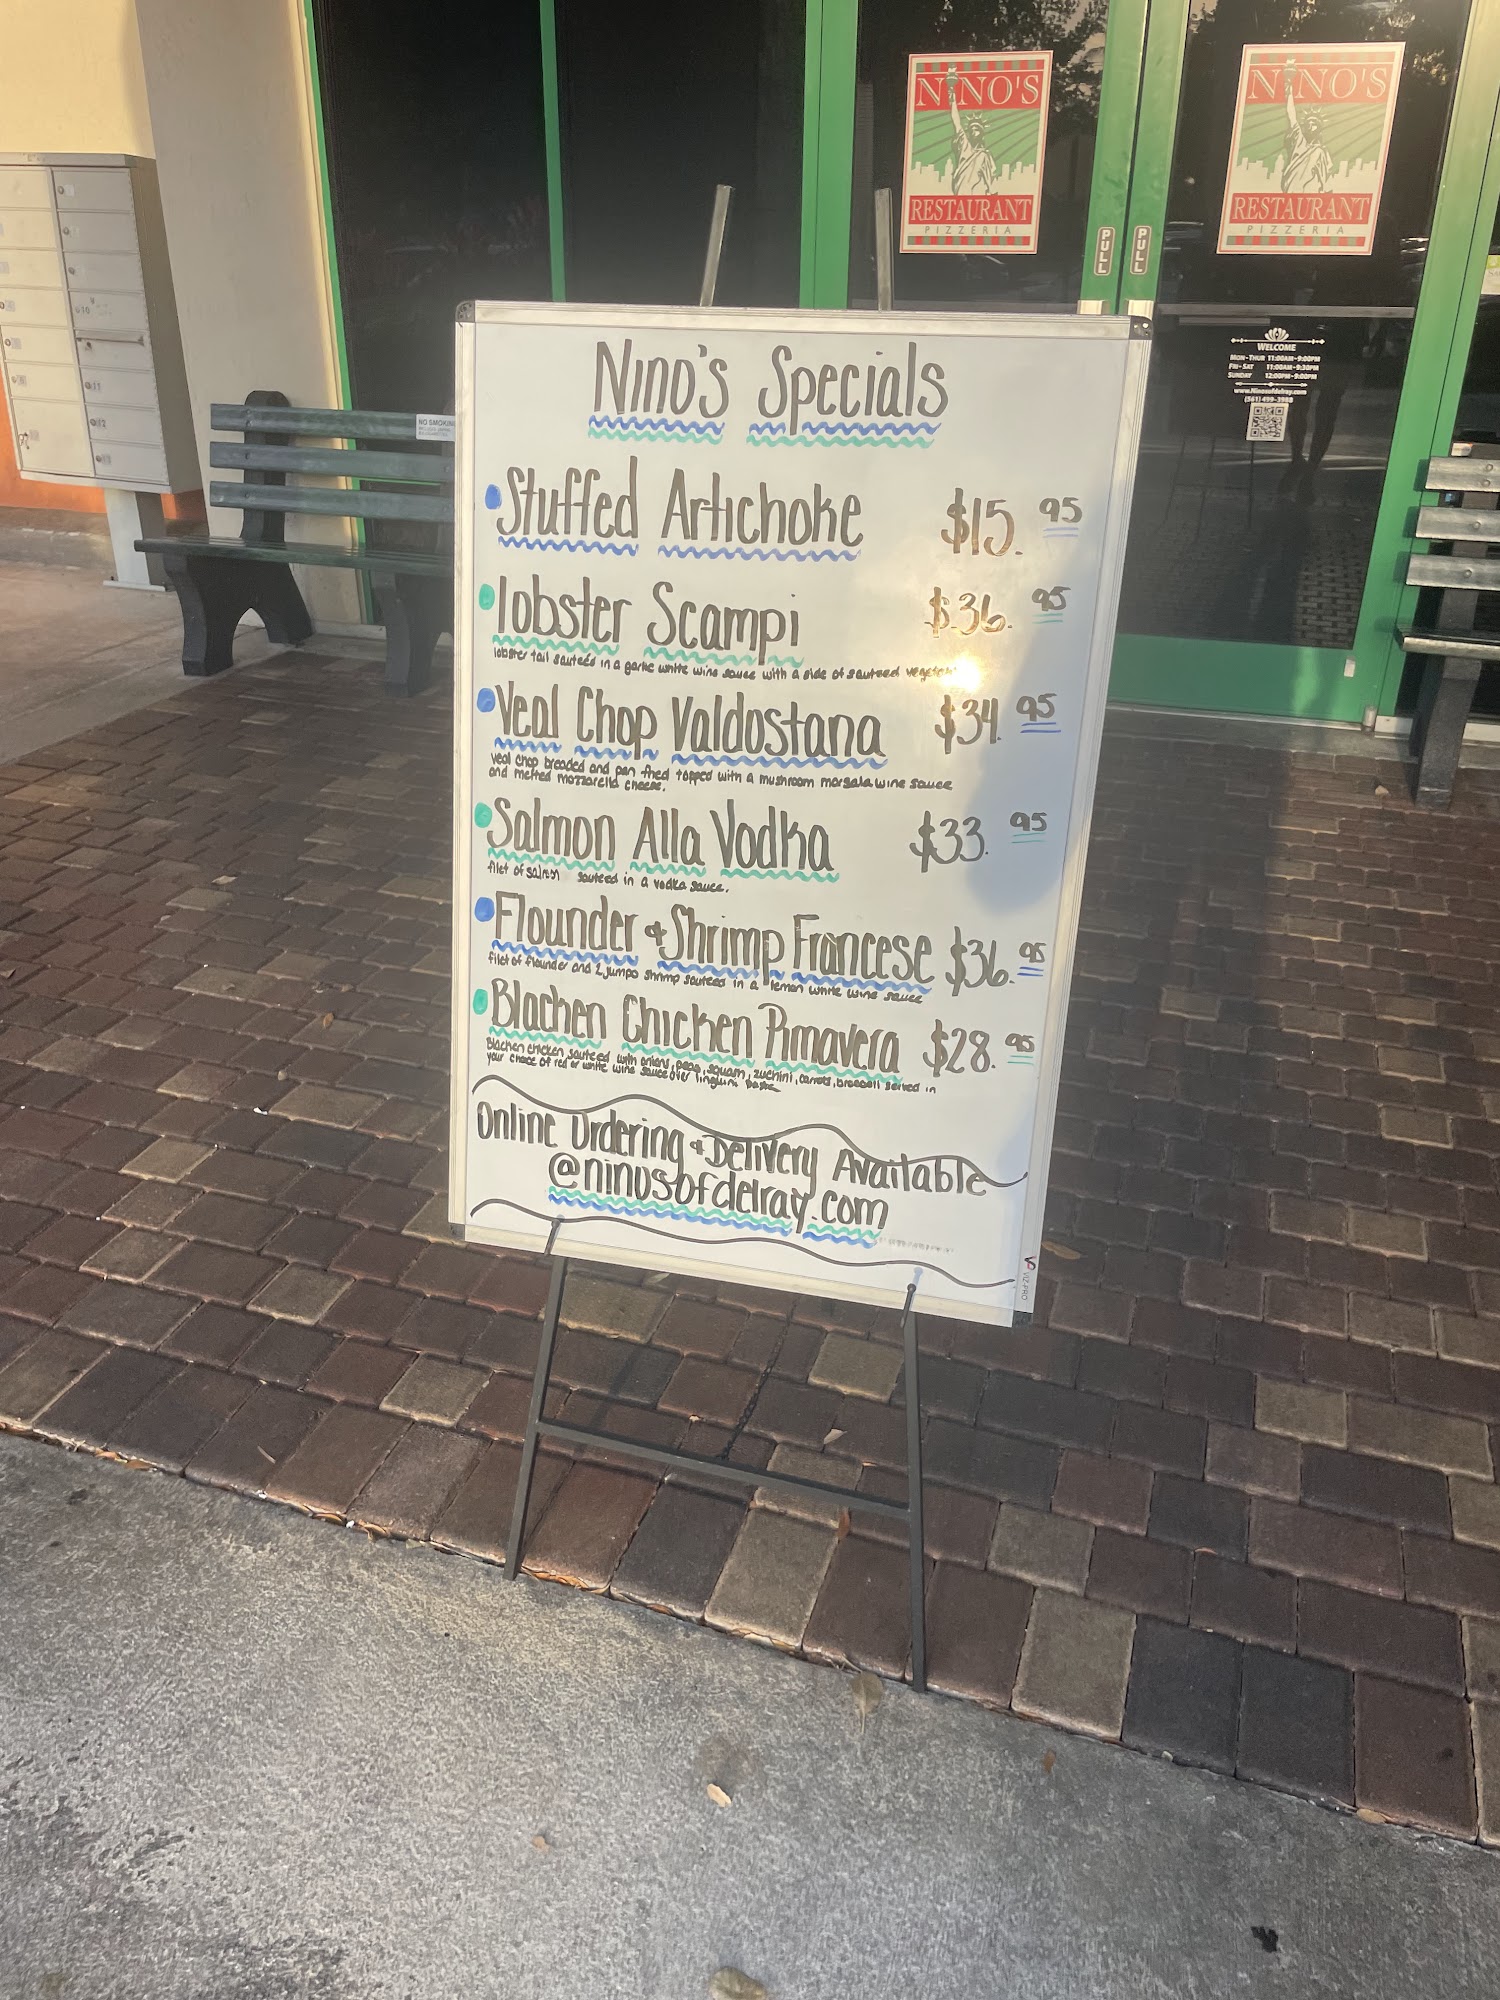 NINO'S
RESTAURANT
PIZZERIA
NINO'S
RESTAURANT
PIZZERIA
PULL
PULL
WELCOME
MON - THUR 11:00AM-9:00PM
FRI - SAT 11:00AM-9:30PM
SUNDAY 12:00PM-9:00PM
www.Ninosofdelray.com
(561) 499-3988
NO SMOKING
10
11
12
Nino's Specials
Stuffed Artichoke $15.95
lobster Scampi $36.95
lobster tail sauteed in a garlic white wine sauce with a side of sauteed
Veal Chop Valdostana $34.95
veal chop breaded and pan fried topped with a mushroom marsala wine sauce
and melted mozzarella cheese.
Salmon Alla Vodka $33.95
filet of salmon sauteed in a vodka sauce.
Flounder & Shrimp Francese $36.95
filet of flounder and 2 jumpo shrimp sauteed in a lemon white wine sauce
Blacken Chicken Primavera $28.95
Blacken chicken sauteed with onions, peas, squash, zuchini, carrots, broccoli served in
your choice of red or white wine sauce over linguini pasta
Online Ordering & Delivery Available
@ninosofdelray.com
VIZ-PRO